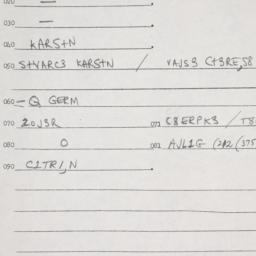 020 —
030 —
040 KARSTN
050 STVARC3 KARSTN / VAJS3 CT3RE,S8
060 – Q GERM
070 20J3R 071 C8ERPK3 / T8
080 0 081 AJL1G (2A2 (375
090 C2TR1,N